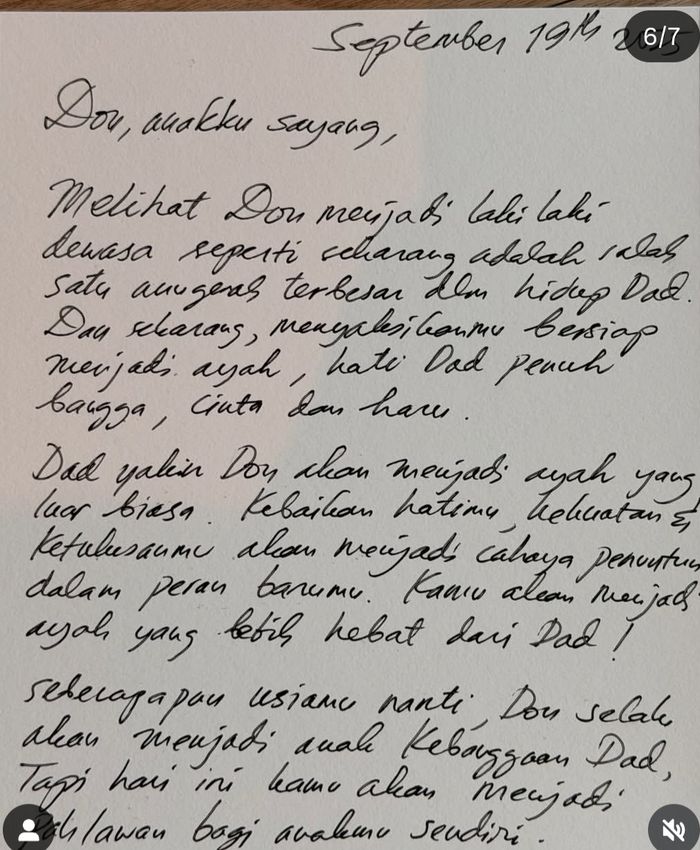 September 19th 2025
6/7
Don, anakku sayang,
Melihat Don menjadi laki laki
dewasa seperti sekarang adalah salah
satu anugerah terbesar dlm hidup Dad.
Dan sekarang, menyaksikanmu bersiap
menjadi ayah, hati Dad penuh
bangga, cinta dan haru.
Dad yakin Don akan menjadi ayah yang
luar biasa. Kebaikan hatimu, kekuatan &
ketulusanmu akan menjadi cahaya penuntun
dalam peran barumu. Kamu akan menjadi
ayah yang lebih hebat dari Dad!
seberapapun usiamu nanti, Don selalu
akan menjadi anak kebanggaan Dad,
Tapi hari ini kamu akan menjadi
pahlawan bagi anakmu sendiri.